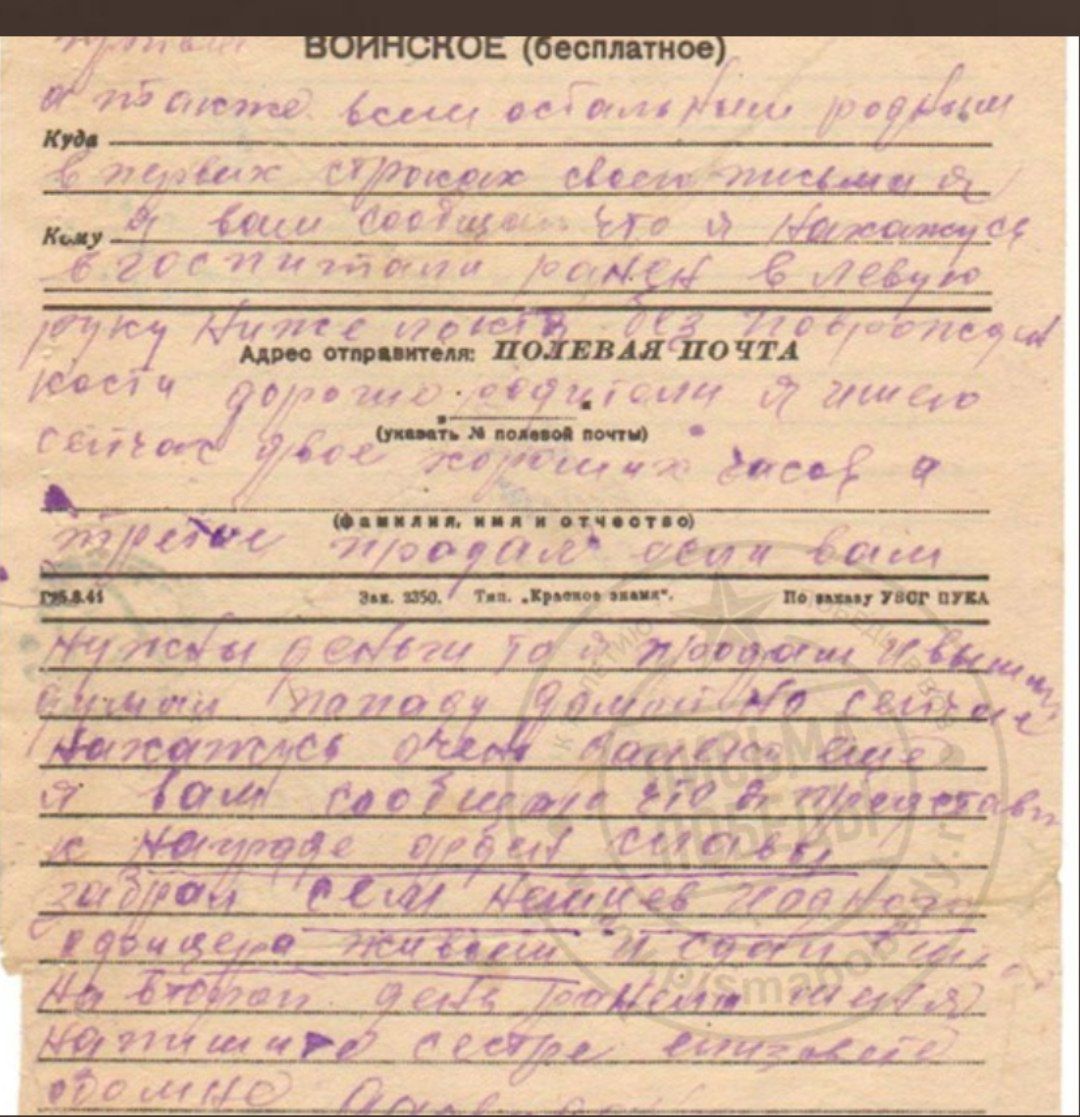 ВОИНСКОЕ (бесплатное)
а также всем остальным родным
Куда
в первых строках своего письма я
Кому
я вам сообщаю что я нахажусь
в госпитали ранен в левую
руку ниже локтя без
Адрес отправителя: ПОЛЕВАЯ ПОЧТА
кости дорогие родители я имею
(указать № полевой почты)
сейчас двое хороших часов а
(фамилия, имя и отчество)
третие продал если вам
Г265.8.41 Зак. 2350. Тип. „Красное знамя“. По заказу УВСГ ПУКА
нужны деньги то я продам и
домой но сейчас
нахажусь очень далеко еще
я вам сообщаю что я
к награде орден славы
забрал сем немцев
офицера живыми и сдал
на второй день ранило меня
напишите сестре
обомне
ПИСЬМА ПОБЕДЫ